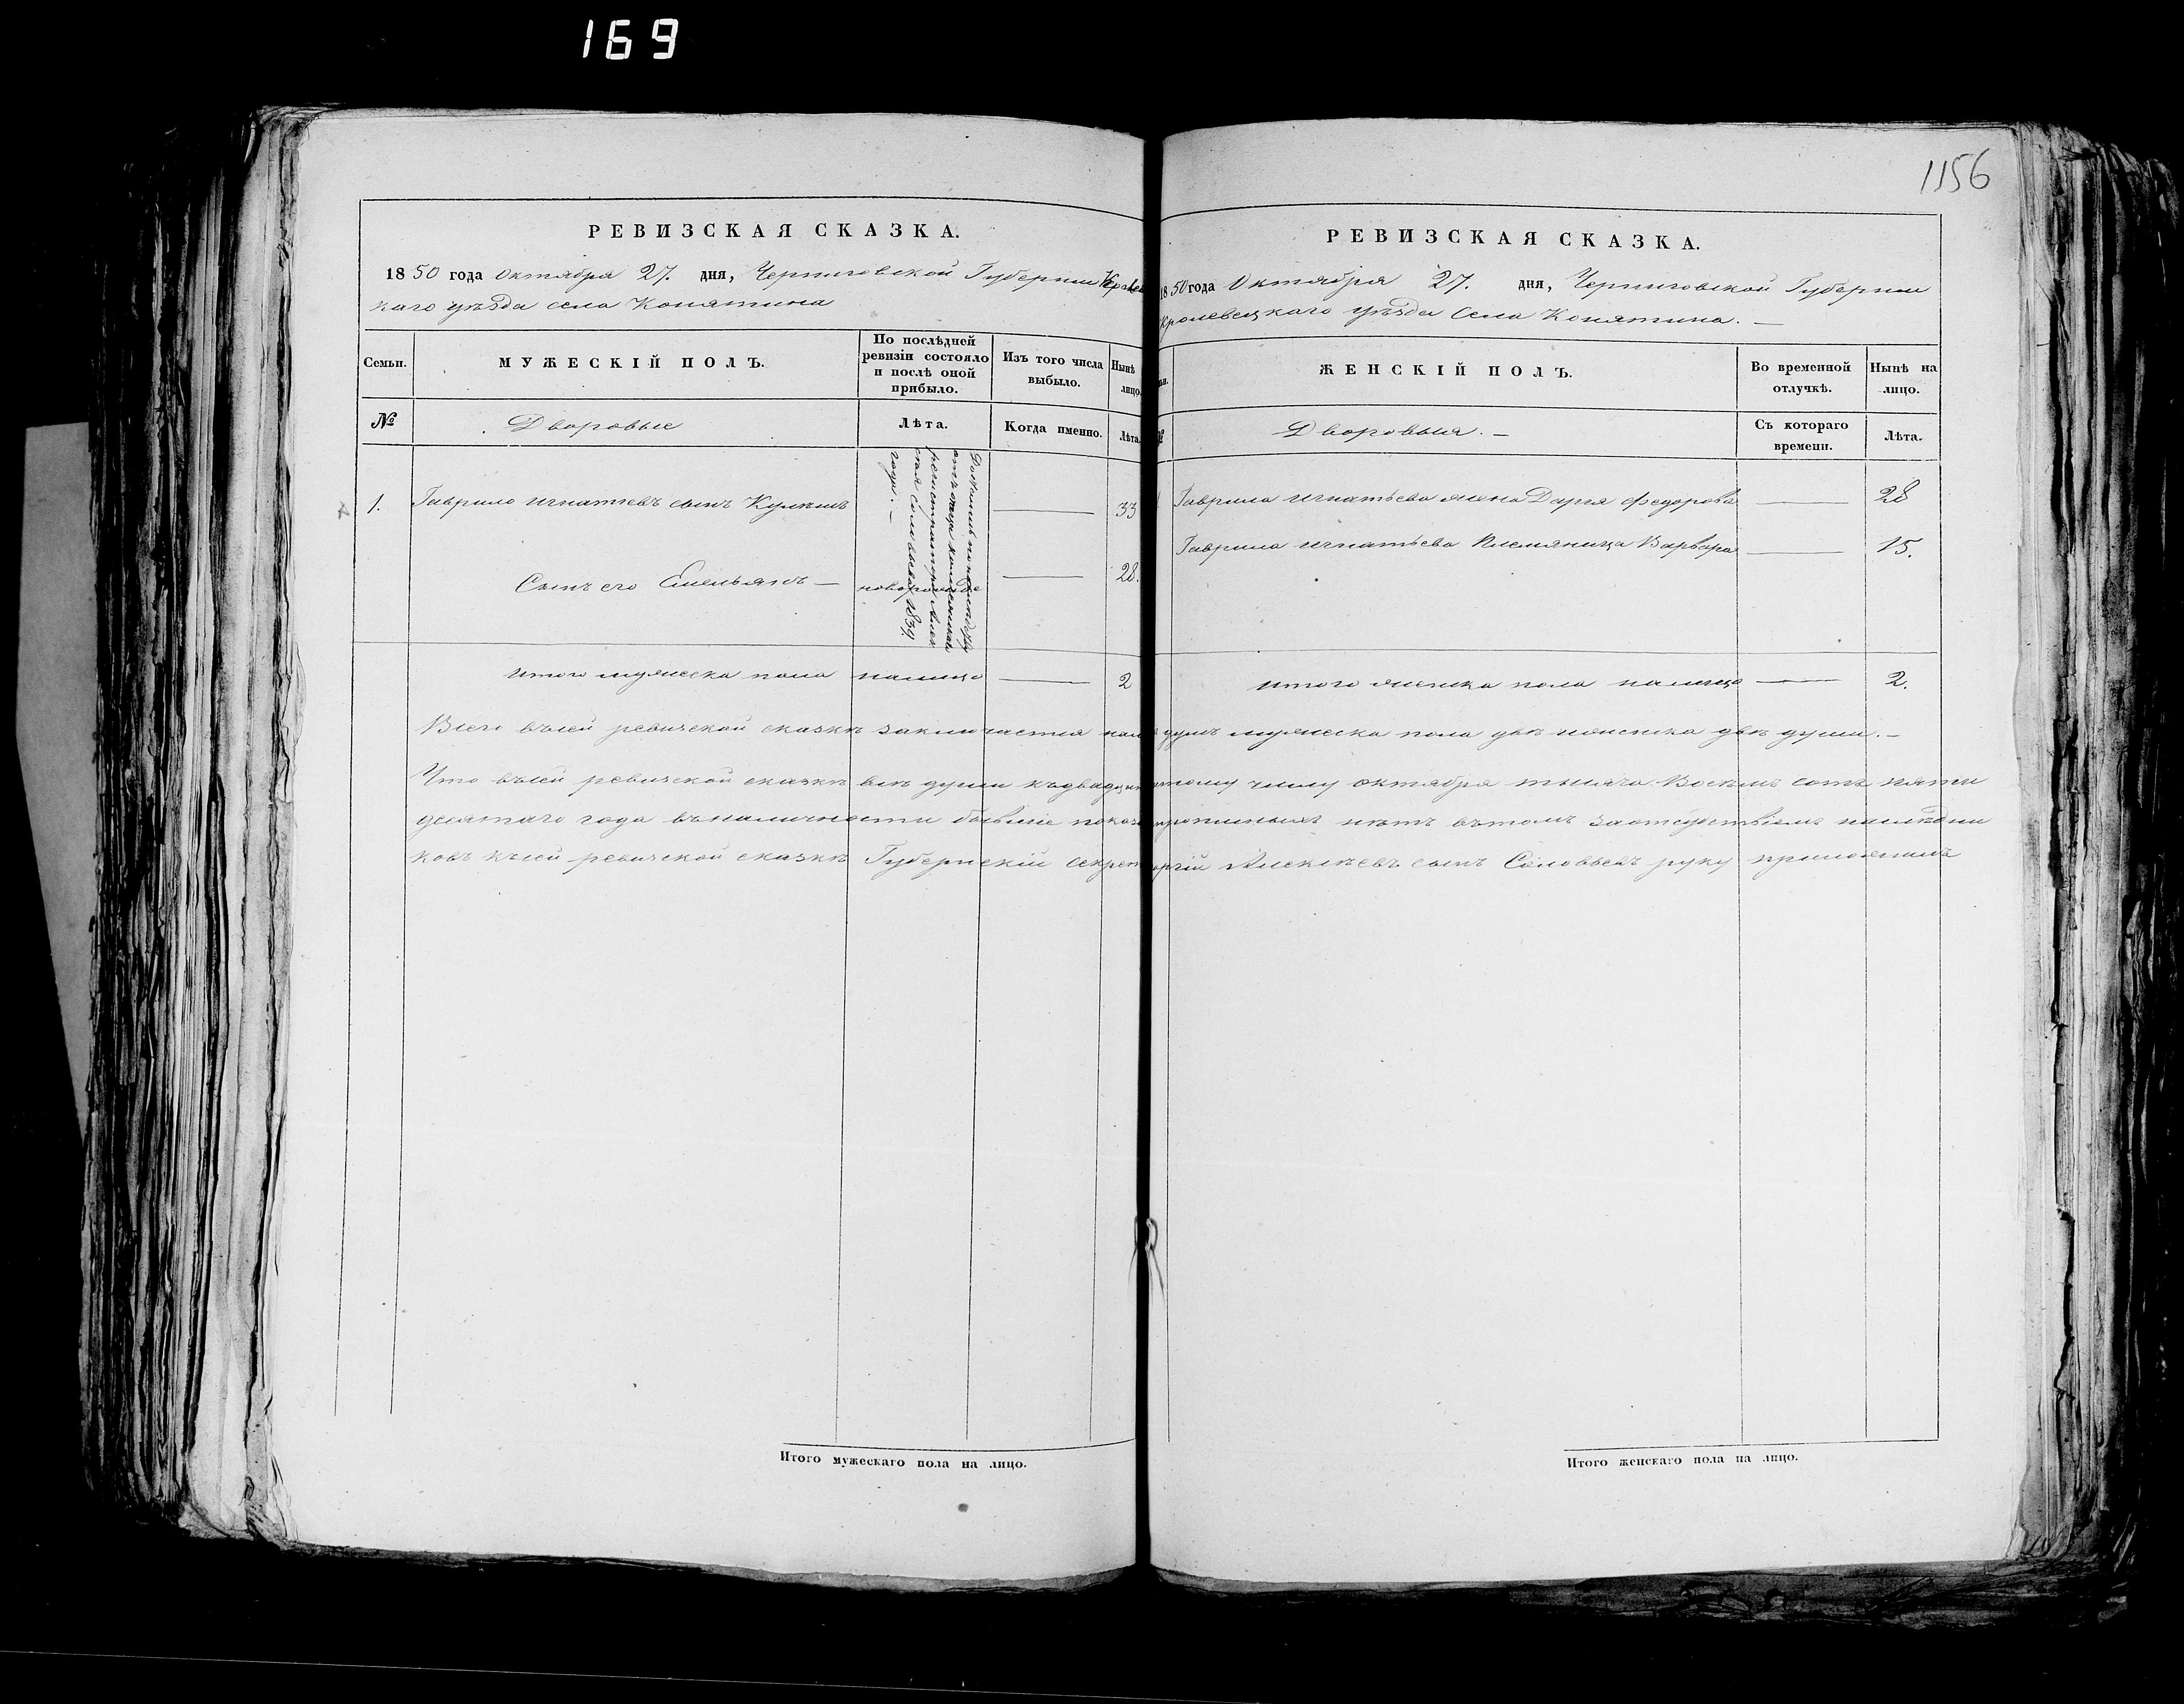 169
1156
РЕВИЗСКАЯ СКАЗКА.
1850 года Октября 27. дня, Черниговской Губернии Кролевец
каго уѣзда села Конятина
Семьи.
МУЖЕСКІЙ ПОЛЪ.
По послѣдней ревизіи состояло и послѣ оной прибыло.
Изъ того числа выбыло.
Нынѣ лицо.
№
Дворовые
Лѣта.
Когда именно.
Лѣта.
1. Гаврило Игнатьевъ сынъ 33
1839 года.
Сынъ его Емельянъ — 28.
итого мужеска пола налицо 2
РЕВИЗСКАЯ СКАЗКА.
1850 года Октября 27. дня, Черниговской Губернии
Кролевецкаго уѣзда Села Конятина. —
ЖЕНСКІЙ ПОЛЪ.
Во временной отлучкѣ.
Нынѣ на лицо.
№
Дворовыя. —
Съ котораго времени.
Лѣта.
Гаврила Игнатьева жена Дарья Федорова 28
Гаврила Игнатьева Племяница Варвара 15.
итого женска пола налицо 2.
Всего въсей ревизской сказкѣ заключается душъ мужеска пола двѣ женска двѣ души. —
Что въсей ревизской сказкѣ всѣ души къдвадцать числу октября тысяча Восемь сотъ пяти
десятаго года въналичности бывшіе показаны прописныхъ нѣтъ вътомъ
ковъ късей ревизской сказкѣ Губернскій секрет Алексѣевъ сынъ Соловьевъ руку приложилъ
Итого мужескаго пола на лицо.
Итого женскаго пола на лицо.